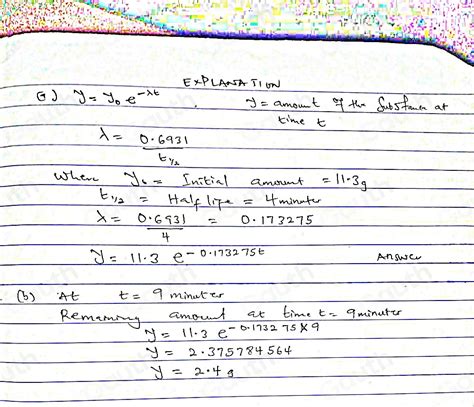 EXPLANATION
G) y = y₀ e^-λt , y = amount of the Substance at
time t
λ = 0.6931 / t½
where y₀ = Initial amount = 11.3g
t½ = Half life = 4 minutes
λ = 0.6931 / 4 = 0.173275
y = 11.3 e^-0.173275t Answer
(b) At t = 9 minutes
Remaining amount at time t = 9 minutes
y = 11.3 e^-0.173275×9
y = 2.375784564
y = 2.4 g